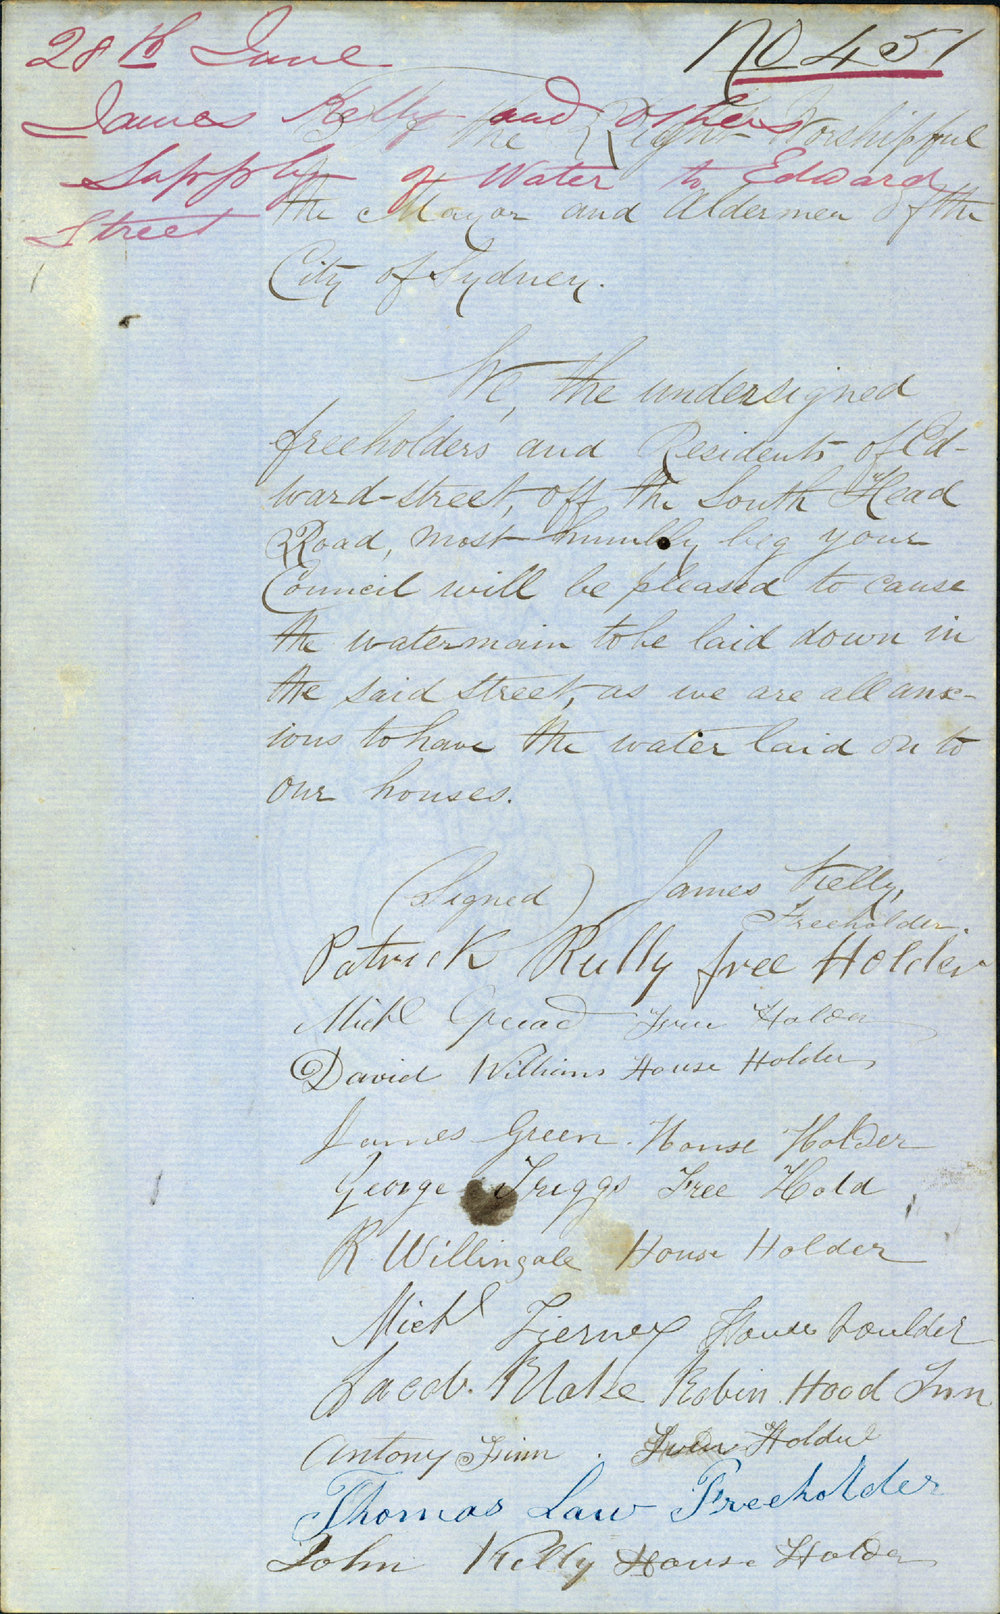 28th June
No 451
James Kelly and others
Supply of Water to Edward
Street
To the Right Worshipful
the Mayor and Aldermen of the
City of Sydney.
We, the undersigned
freeholders and Residents of Ed-
ward-street, off the South Head
Road, most humbly beg your
Council will be pleased to cause
the watermain to be laid down in
the said street, as we are all anx-
ious to have the water laid on to
our houses.
(Signed) James Kelly,
Freeholder.
Patrick Rully free Holder
Michl Holder
David Williams House Holder
James Green. House Holder
George Triggs Free Hold
R Willingale House Holder
Michl Tierney House houlder
Jacob. Blake Robin Hood Inn
Antony Finn. Holder
Thomas Law Freeholder
John Kelly House Holder